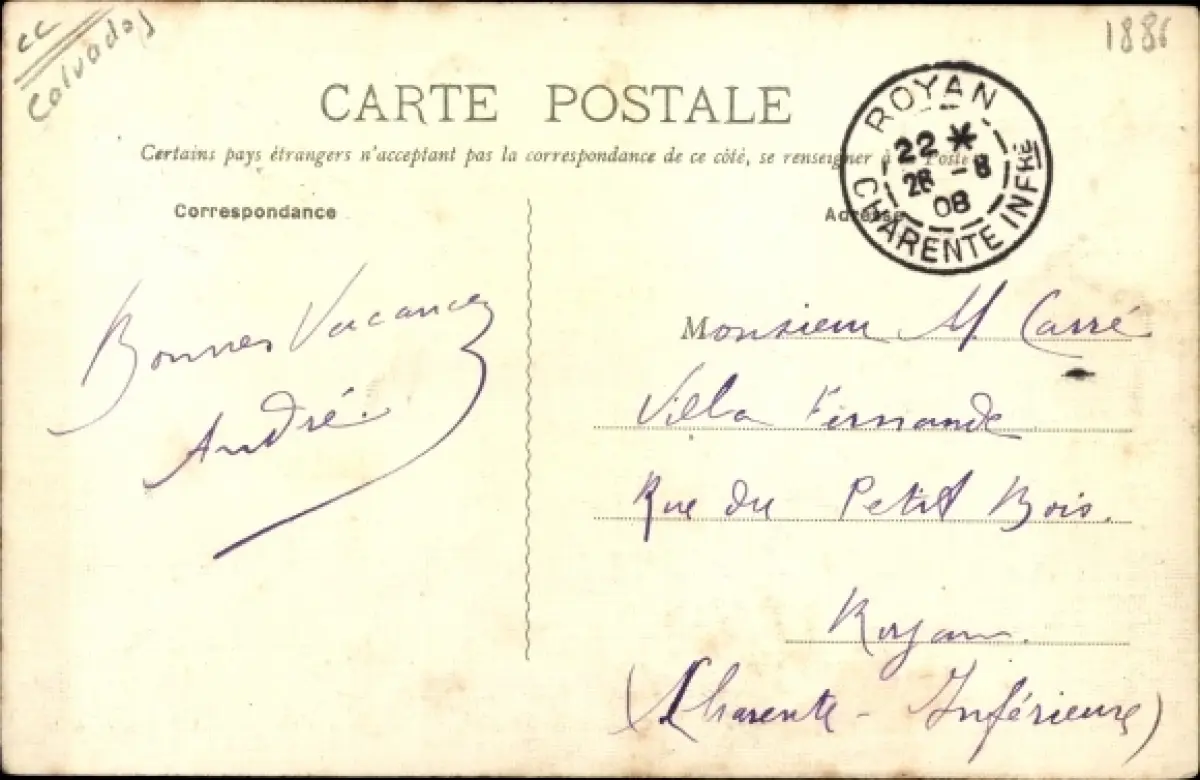 cc
Calvados
1886
CARTE POSTALE
Certains pays étrangers n'acceptant pas la correspondance de ce côté, se renseigner à Poste
ROYAN
22 *
28 - 8
08
CHARENTE INFRE
Correspondance
Adresse
Bonnes Vacances
André.
Monsieur M Carré
Villa Fernande
Rue du Petit Bois.
Royan.
(Charente - Inférieure)